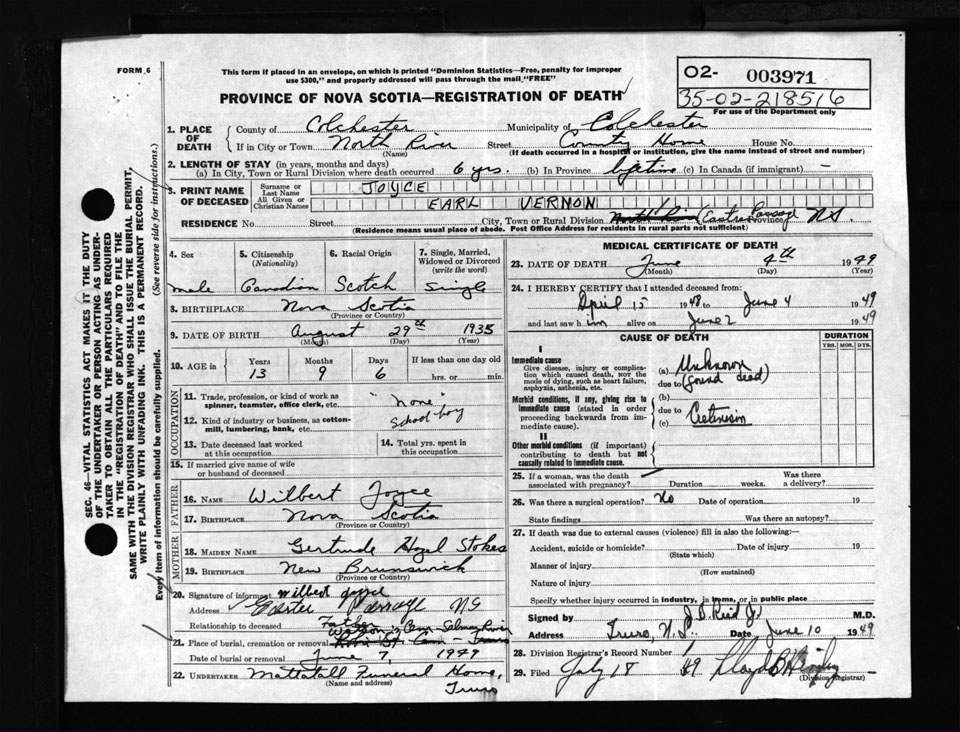 FORM 6
This form if placed in an envelope, on which is printed "Dominion Statistics—Free, penalty for improper
use $300," and properly addressed will pass through the mail "FREE"
02- 003971
35-02-218516
For use of the Department only
PROVINCE OF NOVA SCOTIA—REGISTRATION OF DEATH
1. PLACE OF DEATH County of Colchester Municipality of Colchester
If in City or Town North River Street County Home House No.
(Name) (If death occurred in a hospital or institution, give the name instead of street and number)
2. LENGTH OF STAY (in years, months and days)
(a) In City, Town or Rural Division where death occurred 6 yrs. (b) In Province lifetime (c) In Canada (if immigrant) —
3. PRINT NAME OF DECEASED Surname or Last Name JOYCE
All Given or Christian Names EARL VERNON
RESIDENCE No. Street City, Town or Rural Division (Eastern Passage Province NS.
(Residence means usual place of abode. Post Office Address for residents in rural parts not sufficient)
4. Sex male
5. Citizenship (Nationality) Canadian
6. Racial Origin Scotch
7. Single, Married, Widowed or Divorced (write the word) Single
8. BIRTHPLACE Nova Scotia
(Province or Country)
9. DATE OF BIRTH August 29th 1935
(Month) (Day) (Year)
10. AGE in Years 13 Months 9 Days 6 If less than one day old hrs. or min.
OCCUPATION
11. Trade, profession, or kind of work as spinner, teamster, office clerk, etc. "None"
12. Kind of industry or business, as cotton-mill, lumbering, bank, etc. School boy
13. Date deceased last worked at this occupation
14. Total yrs. spent in this occupation
15. If married give name of wife or husband of deceased
FATHER
16. NAME Wilbert Joyce
17. BIRTHPLACE Nova Scotia
(Province or Country)
MOTHER
18. MAIDEN NAME Gertrude Hazel Stokes
19. BIRTHPLACE New Brunswick
(Province or Country)
20. Signature of informant Wilbert Joyce
Address Easter Passage NS
Relationship to deceased Father
21. Place of burial, cremation or removal Cem - Salmon River
Cem - Truro
Date of burial or removal June 7, 1949
22. UNDERTAKER Mattatall Funeral Home,
(Name and address) Truro
MEDICAL CERTIFICATE OF DEATH
23. DATE OF DEATH June 4th 1949
(Month) (Day) (Year)
24. I HEREBY CERTIFY that I attended deceased from:
April 15 1948 to June 4 1949
and last saw him alive on June 2 1949
CAUSE OF DEATH
DURATION
YRS. MOS. DYS.
I
Immediate cause
Give disease, injury or complication which caused death, NOT the mode of dying, such as heart failure, asphyxia, asthenia, etc.
(a) Unknown
due to (found dead)
Morbid conditions, if any, giving rise to immediate cause (stated in order proceeding backwards from immediate cause).
(b)
due to
(c) Cretinism
II
Other morbid conditions (if important) contributing to death but not causally related to immediate cause.
25. If a woman, was the death associated with pregnancy? Duration weeks. Was there a delivery?
26. Was there a surgical operation? No Date of operation 19
State findings Was there an autopsy?
27. If death was due to external causes (violence) fill in also the following:—
Accident, suicide or homicide? Date of injury 19
(State which)
Manner of injury
(How sustained)
Nature of injury
Specify whether injury occurred in industry, in home, or in public place
Signed by J. D. Reid Jr. M.D.
Address Truro, N.S. Date June 10 1949
28. Division Registrar's Record Number
29. Filed July 18 49 Lloyd
(Division Registrar)
SEC. 46—VITAL STATISTICS ACT MAKES IT THE DUTY
OF THE UNDERTAKER OR PERSON ACTING AS UNDER-
TAKER TO OBTAIN ALL THE PARTICULARS REQUIRED
IN THE "REGISTRATION OF DEATH" AND TO FILE THE
SAME WITH THE DIVISION REGISTRAR WHO SHALL ISSUE THE BURIAL PERMIT,
WRITE PLAINLY WITH UNFADING INK. THIS IS A PERMANENT RECORD.
Every item of information should be carefully supplied. (See reverse side for instructions.)